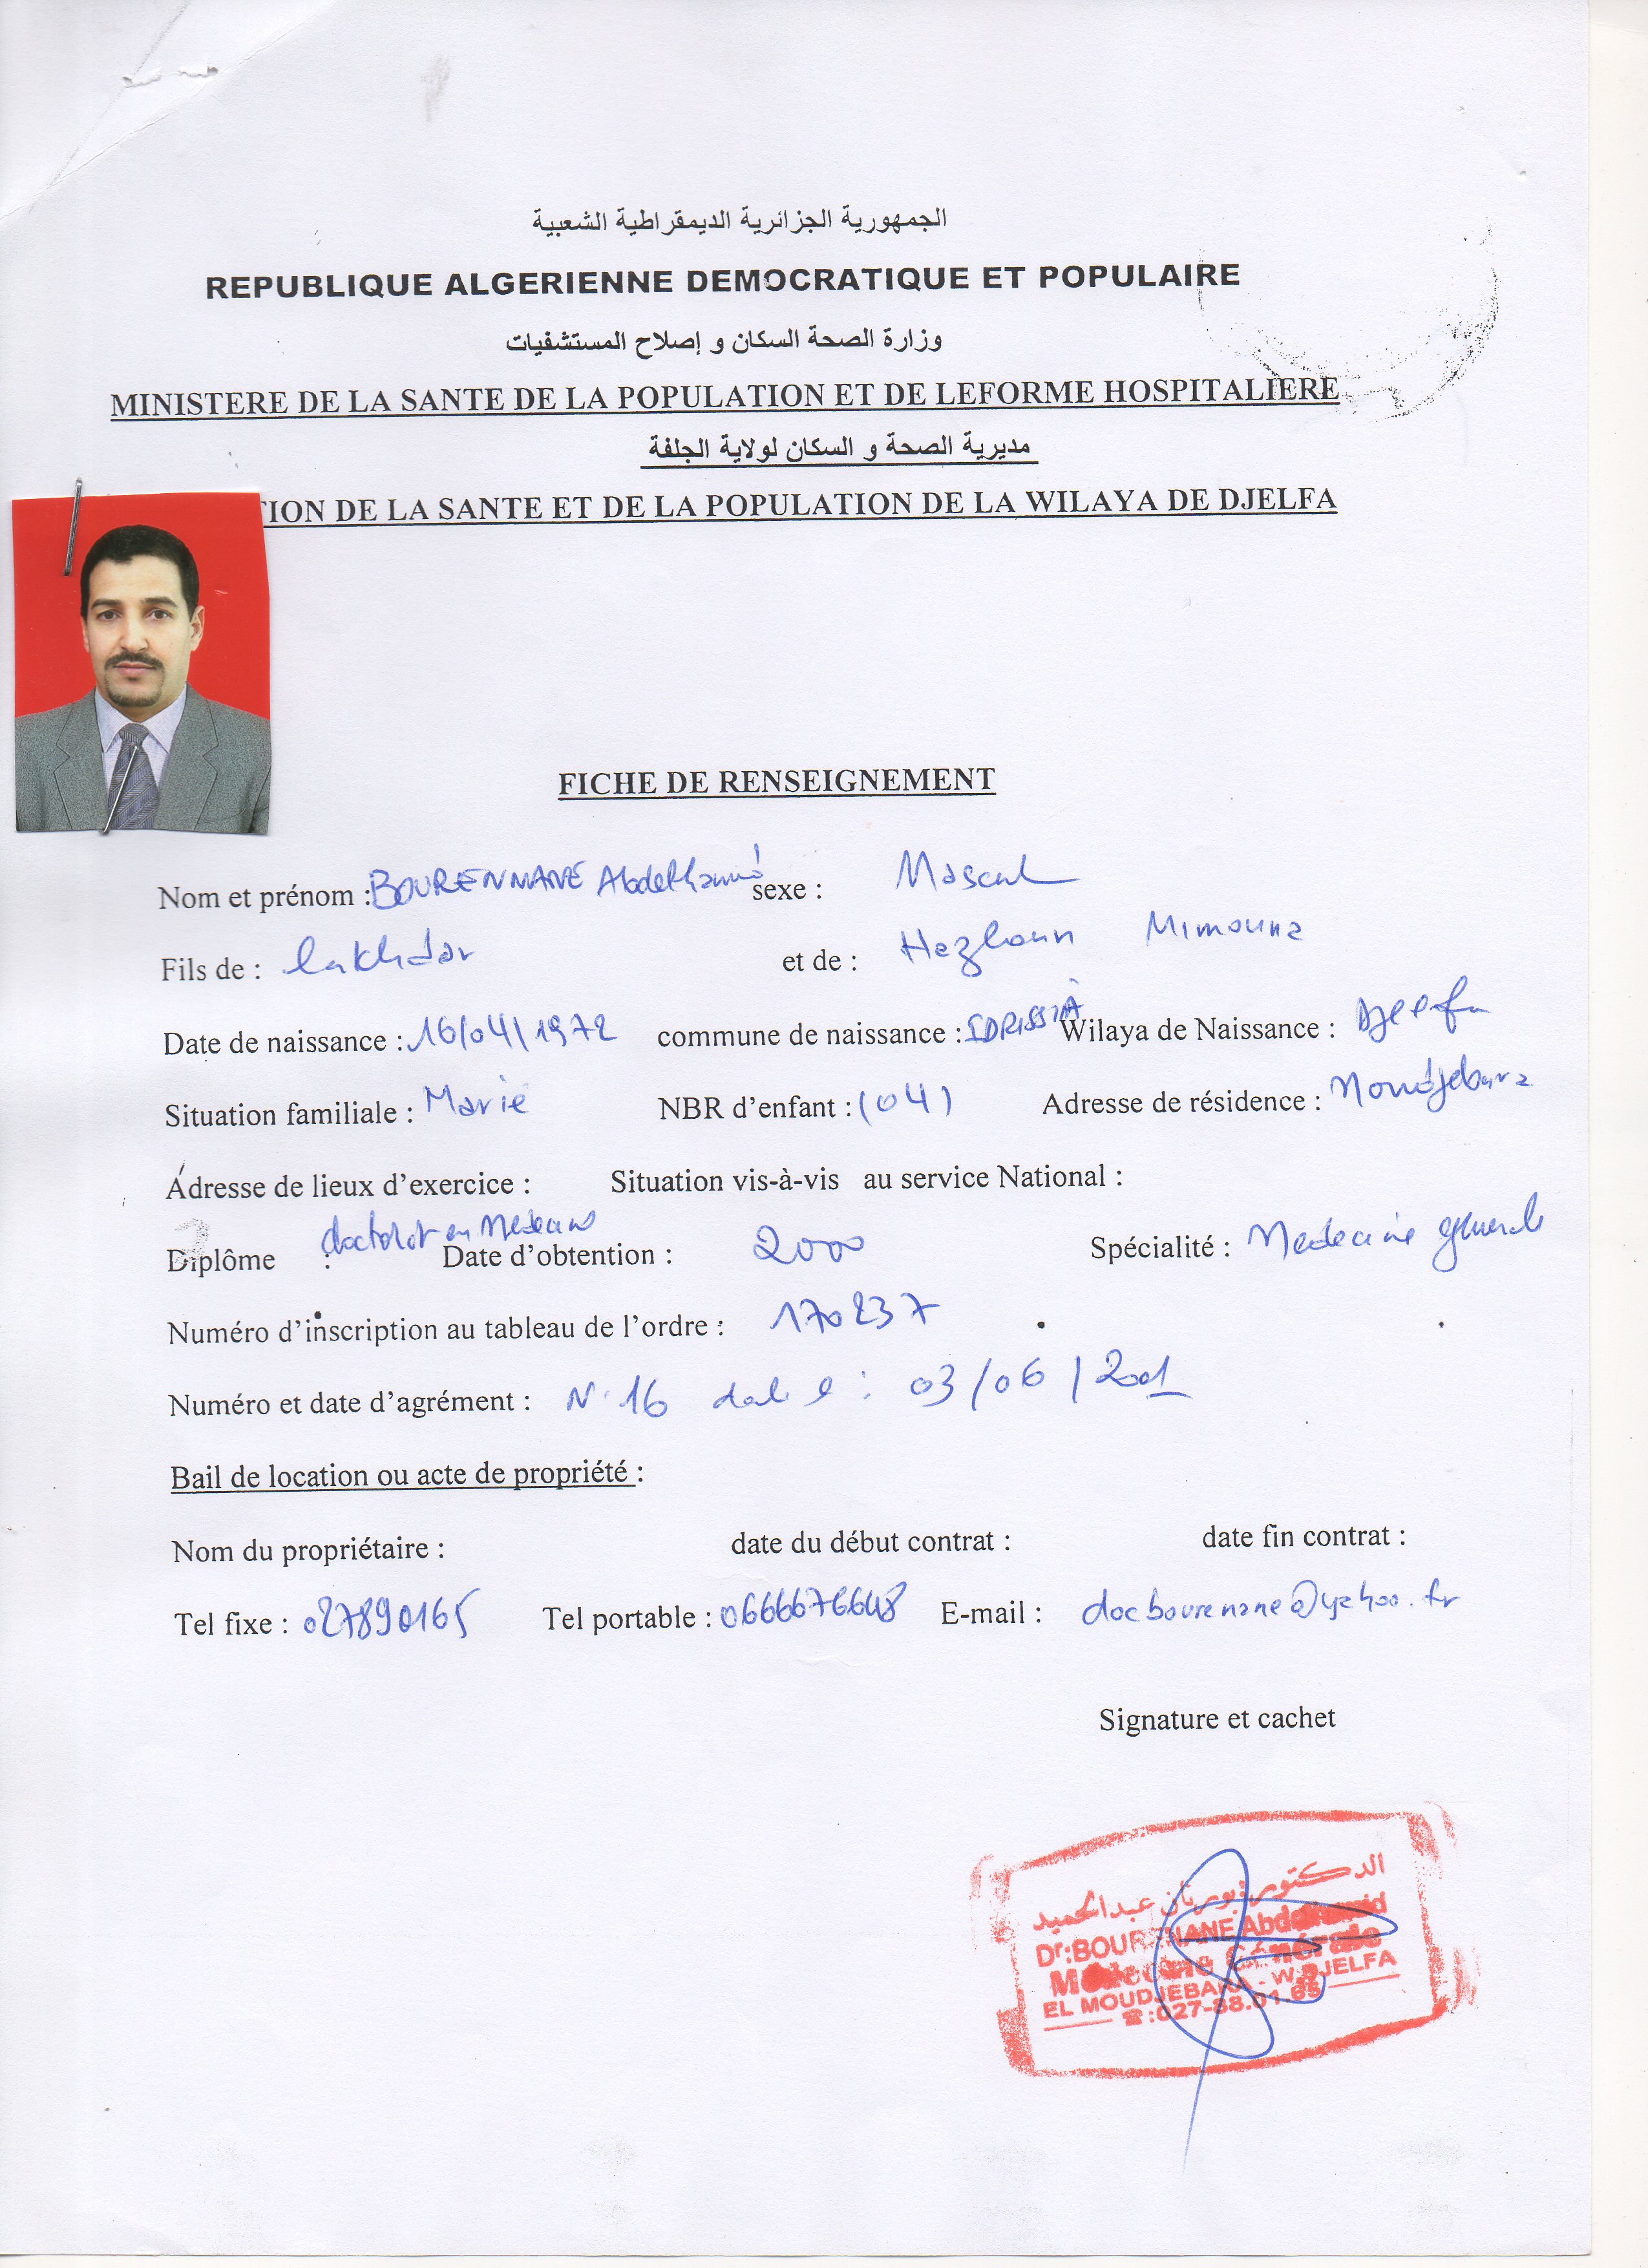 الجمهورية الجزائرية الديمقراطية الشعبية
REPUBLIQUE ALGERIENNE DEMOCRATIQUE ET POPULAIRE
وزارة الصحة السكان و إصلاح المستشفيات
MINISTERE DE LA SANTE DE LA POPULATION ET DE LEFORME HOSPITALIERE
مديرية الصحة و السكان لولاية الجلفة
TION DE LA SANTE ET DE LA POPULATION DE LA WILAYA DE DJELFA
FICHE DE RENSEIGNEMENT
Nom et prénom : BOURENNANE Abdelhamid sexe : Mascul
Fils de : lakhdar et de : Mimouna
Date de naissance : 16/04/1972 commune de naissance : IDRISSIA Wilaya de Naissance : Djelfa
Situation familiale : Marié NBR d’enfant : (04) Adresse de résidence : Moudjebara
Adresse de lieux d’exercice : Situation vis-à-vis au service National :
Diplôme : doctorat en Médecine Date d’obtention : 2000 Spécialité : Medecine generale
Numéro d’inscription au tableau de l’ordre : 170237
Numéro et date d’agrément : N° 16 date : 03/06/2001
Bail de location ou acte de propriété :
Nom du propriétaire : date du début contrat : date fin contrat :
Tel fixe : 027890165 Tel portable : 0666676648 E-mail : docbourenane@yahoo.fr
Signature et cachet
الدكتور: بورنان عبدالحميد
Dr:BOURENANE Abdelhamid
Médecine Générale
EL MOUDJEBARA - W.DJELFA
☎:027-88.01.65